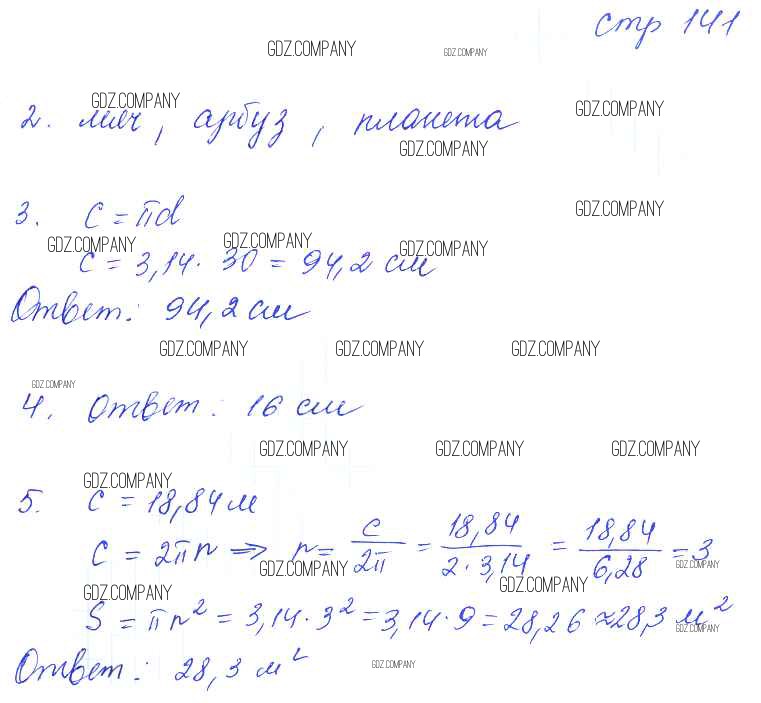 стр 141
GDZ.COMPANY GDZ.COMPANY
GDZ.COMPANY GDZ.COMPANY
2. мяч, арбуз, планета
GDZ.COMPANY
GDZ.COMPANY
3. C = πd
GDZ.COMPANY GDZ.COMPANY GDZ.COMPANY
C = 3,14 · 30 = 94,2 см
Ответ: 94,2 см
GDZ.COMPANY GDZ.COMPANY GDZ.COMPANY
GDZ.COMPANY
4. Ответ: 16 см
GDZ.COMPANY GDZ.COMPANY GDZ.COMPANY
GDZ.COMPANY
5. C = 18,84 м
C = 2πr => r = C/2π = 18,84/2 · 3,14 = 18,84/6,28 = 3
GDZ.COMPANY GDZ.COMPANY
GDZ.COMPANY GDZ.COMPANY
S = πr² = 3,14 · 3² = 3,14 · 9 = 28,26 ≈ 28,3 м²
GDZ.COMPANY
Ответ: 28,3 м²
GDZ.COMPANY